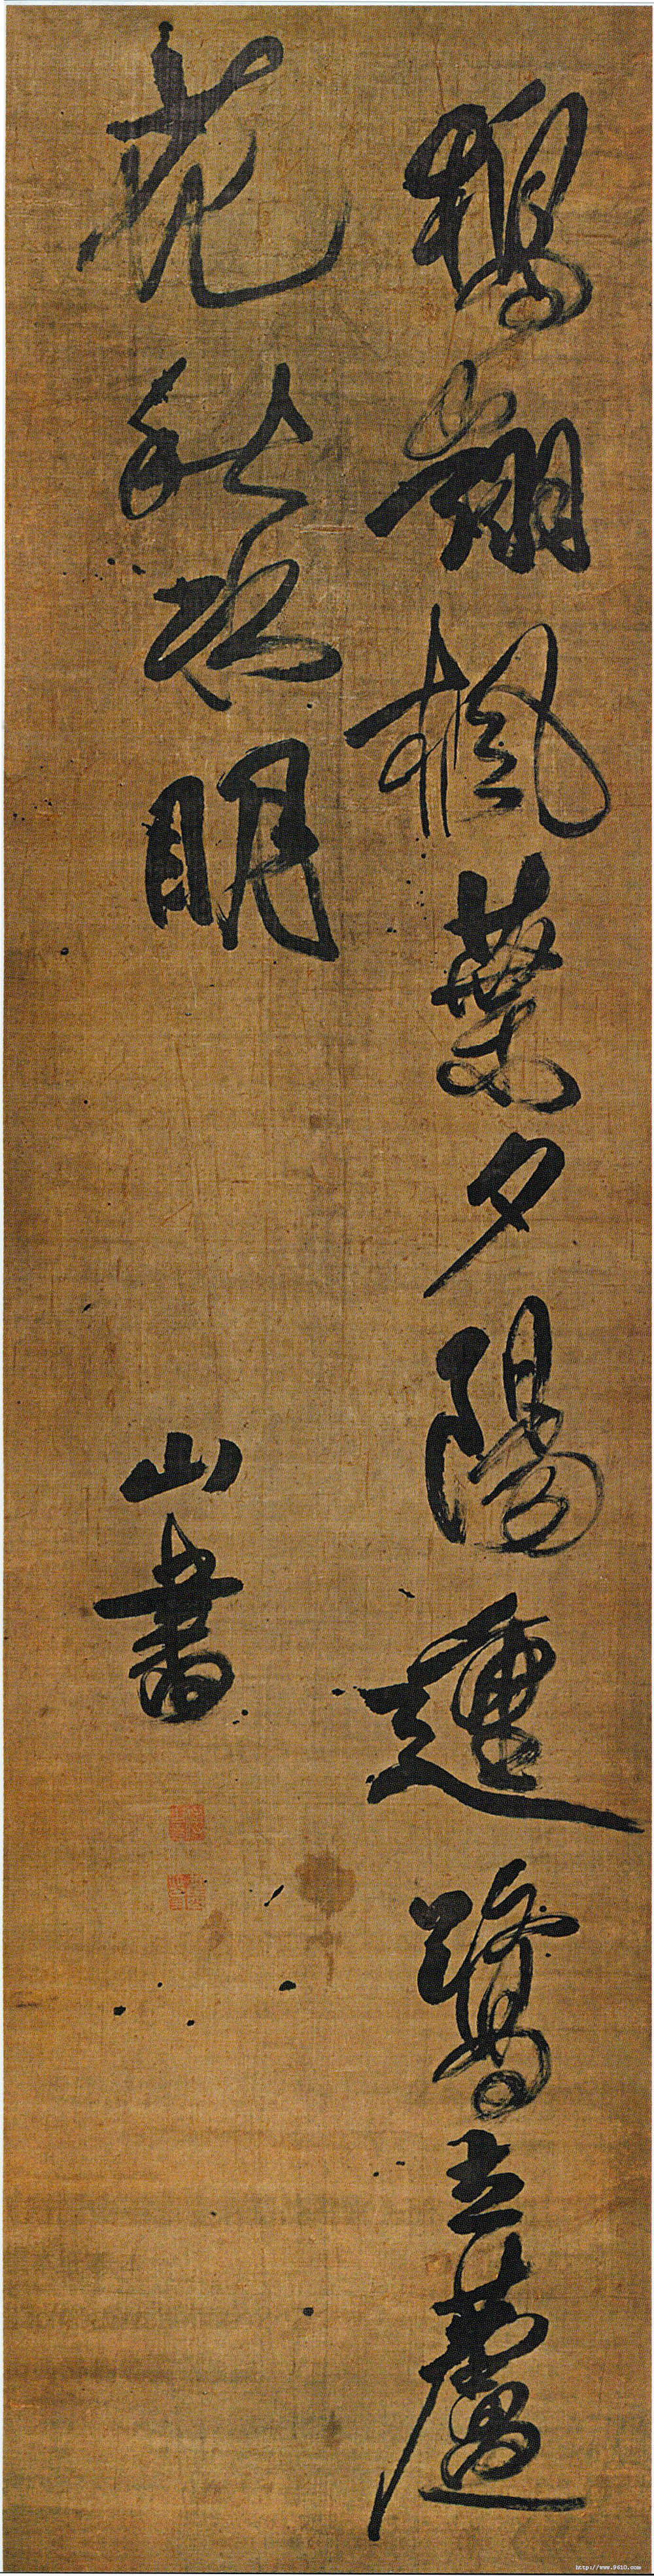 鴉翻楓葉夕陽動鷺立蘆
花秋水明
山書
http://www.9610.com